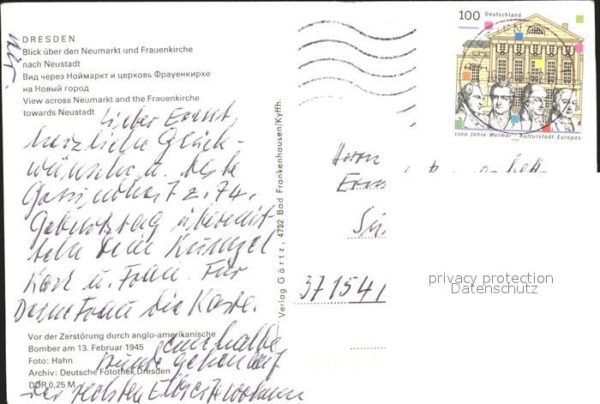 DRESDEN
Blick über den Neumarkt und Frauenkirche
nach Neustadt
Вид через Ноймаркт и церковь Фрауенкирхе
на Новый город
View across Neumarkt and the Frauenkirche
towards Neustadt
Lieber Ernst,
herzliche Glück-
wünsche u. beste
Gesundheit z. 74.
Geburtstag übermit-
teln Dein Kumpel
Karl u. Frau. Für
Deine Frau die Karte.
Vor der Zerstörung durch anglo-amerikanische
Bomber am 13. Februar 1945
Foto: Hahn
Archiv: Deutsche Fotothek Dresden
DDR 0,25 M
der rechten Elbseite wohnen
Verlag Görtz, 4732 Bad Frankenhausen/Kyffh.
100 Deutschland
1100 Jahre Weimar · Kulturstadt Europas
Herrn
371541
privacy protection
Datenschutz